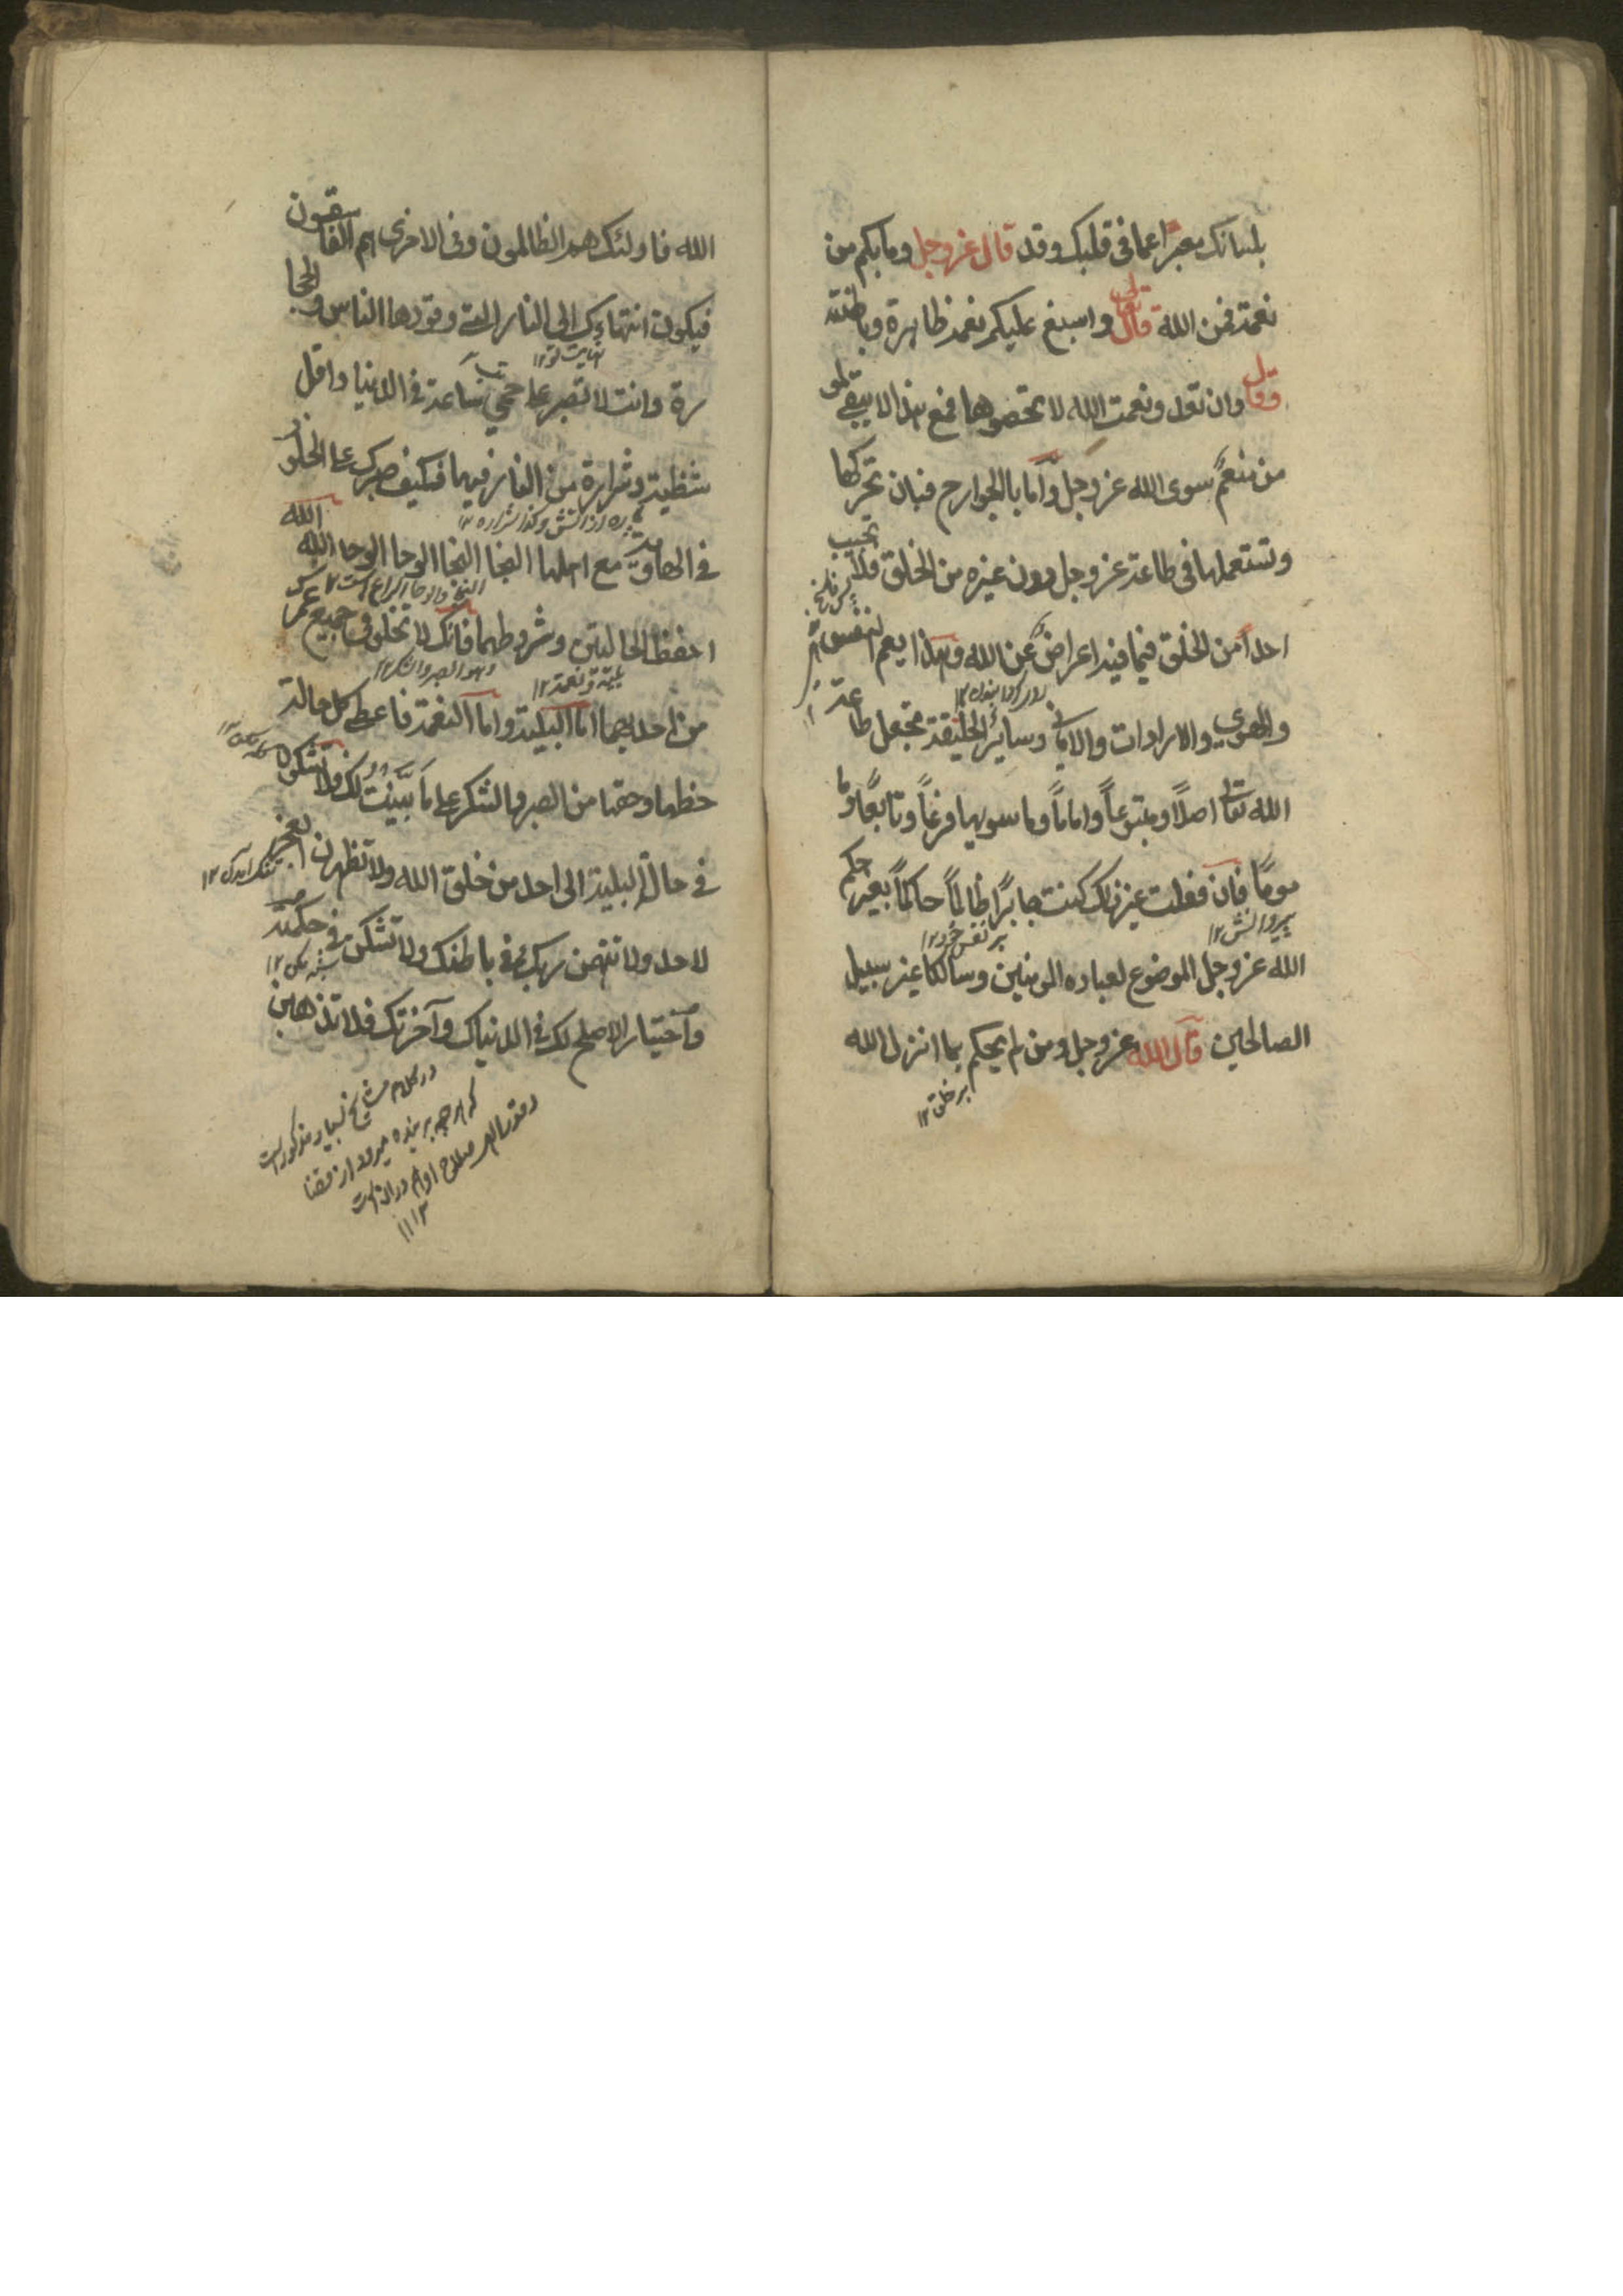 بلسانك معبرًا عما في قلبك وقد قال عز وجل وما بكم من
نعمة فمن الله قال تعالى واسبغ عليكم نعمه ظاهرة وباطنة
وقال وان تعدو نعمت الله لا تحصوها فمع هذا لا يبقى لمو
من منعم سوى الله عز وجل وأما بالجوارح فبان تحركها
وتستعملها في طاعة عز وجل دون غيره من الخلق فلا تجيب
احدًا من الخلق فيما فيه اعراض عن الله وهذا يعم النفس
والهوى والارادات والاماني وساير الخليقة تجعل طاعة
الله تعالى اصلًا ومتبوعًا وامامًا وما سويها فرعًا وتابعًا وما
مومًا فان فعلت غير ذلك كنت جابرًا ظالمًا حاكمًا بغير حكم
پیرو آنش ۱۲
بر نفس خود ۱۲
الله عز وجل الموضوع لعباده المومنين وسالكا غير سبيل
الصالحين قال الله عز وجل ومن لم يحكم بما انزل الله
بر خلق ۱۲
الله فاولئك هم الظالمون وفي الاخرى هم الفاسقون
فيكون انتهاءك الى النار التي وقودها الناس والحجا
نهایت تو ۱۲
تب
رة وانت لا تصبر على حمي ساعة في الدنيا واقل
شظية وشرارة من النار فيها فكيف صبرك على الخلود
پاره از آتش وكذا شراره ۱۲
في الهاوية مع اهلها النجا النجا الوحا الوحا الله الله
احفظ الحالتين وشروطهما فانك لا تخلو في جميع عمرك
وهو الصبر والشكر ۱۲
بلية و نعمة ۱۲
من احديهما اما البلية واما النعمة فاعط كل حالة
حظها وحقها من الصبر والشكر على ما بينت لك ولا تشكون
في حال البلية الى احد من خلق الله ولا تظهرن الضجر
تنگ آمدن ۱۲
لاحد ولا تتهمن ربك في باطنك ولا تشكن في حكمته
شبه مكن ۱۲
واختيار الاصلح لك في الدنياك وآخرتك فلا تذهبن
در كلام مشايخ بسيار مذكور است
كه هر چه بر بنده ميرود از قضا